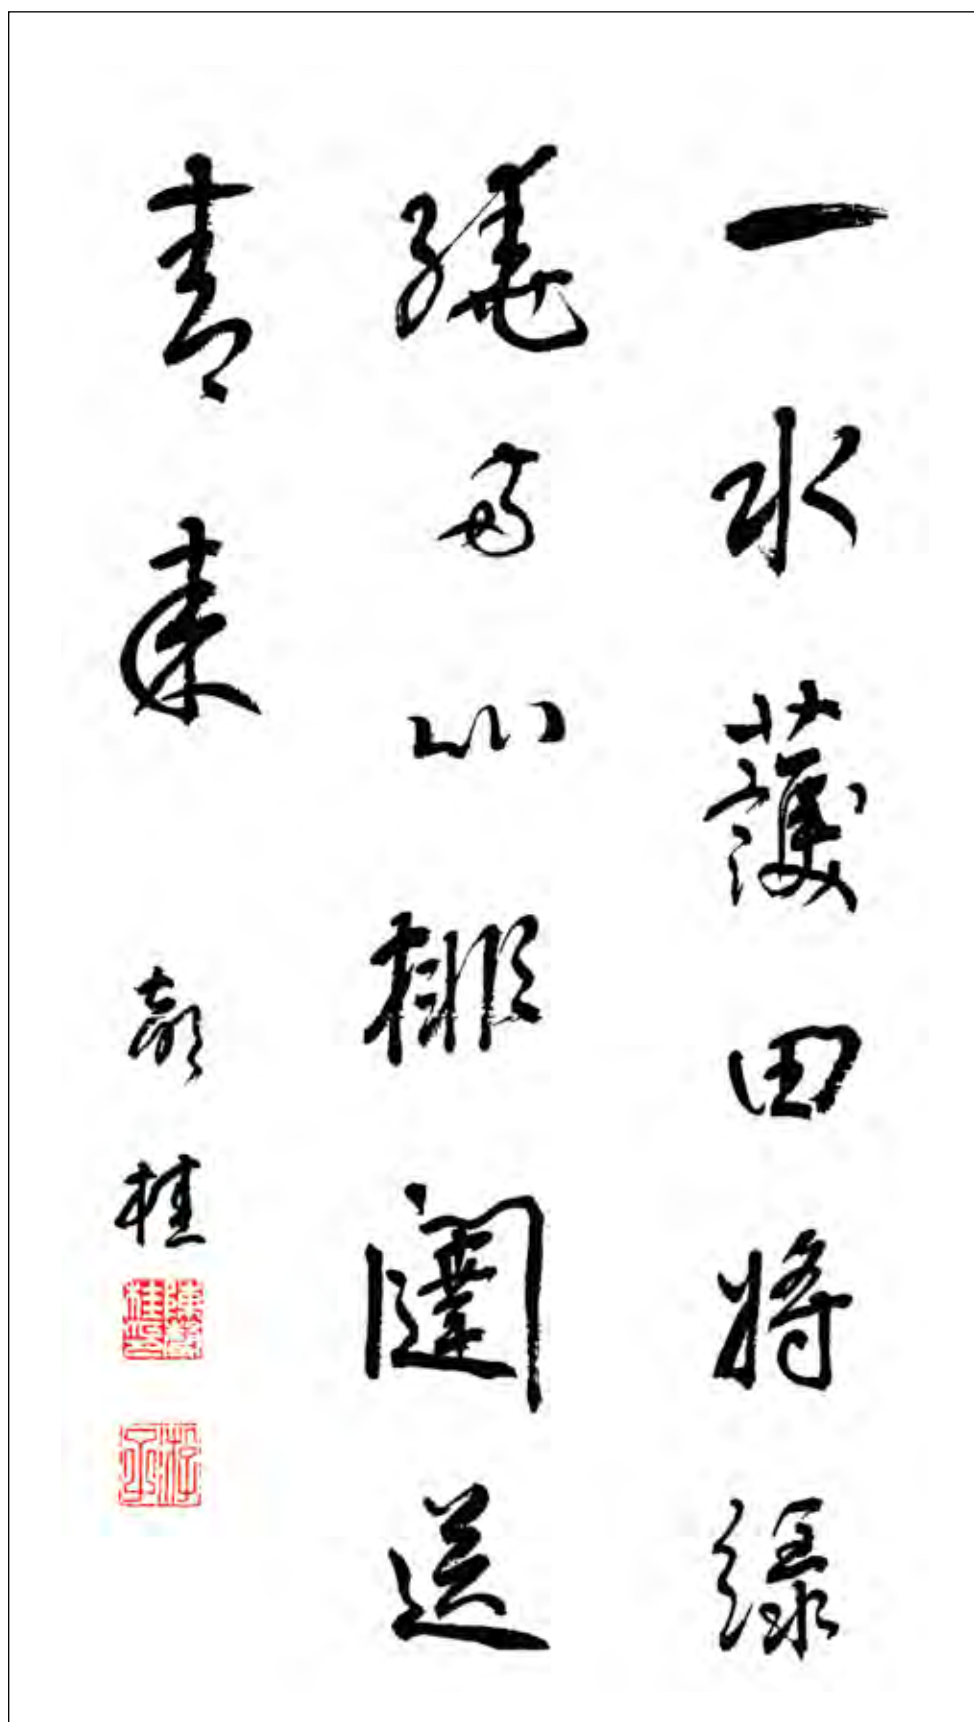 一水護田將綠
繞兩山排闥送
青來
桂